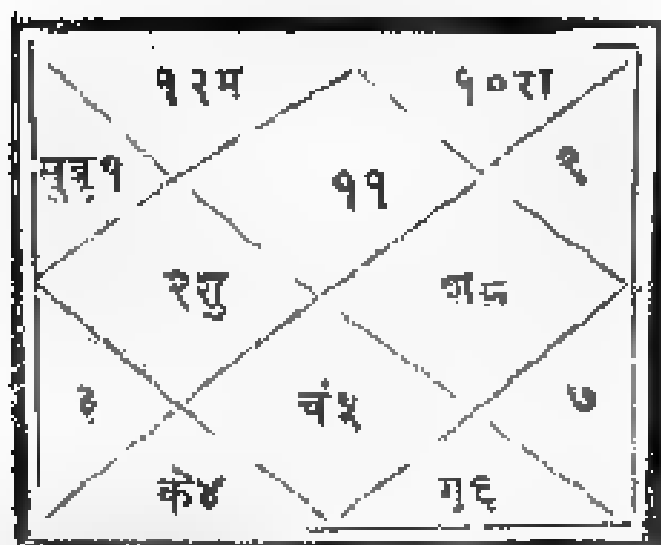 १२म १०रा
सुबु१ ९
११
२शु शन
३ चं५ ७
के४ गु६